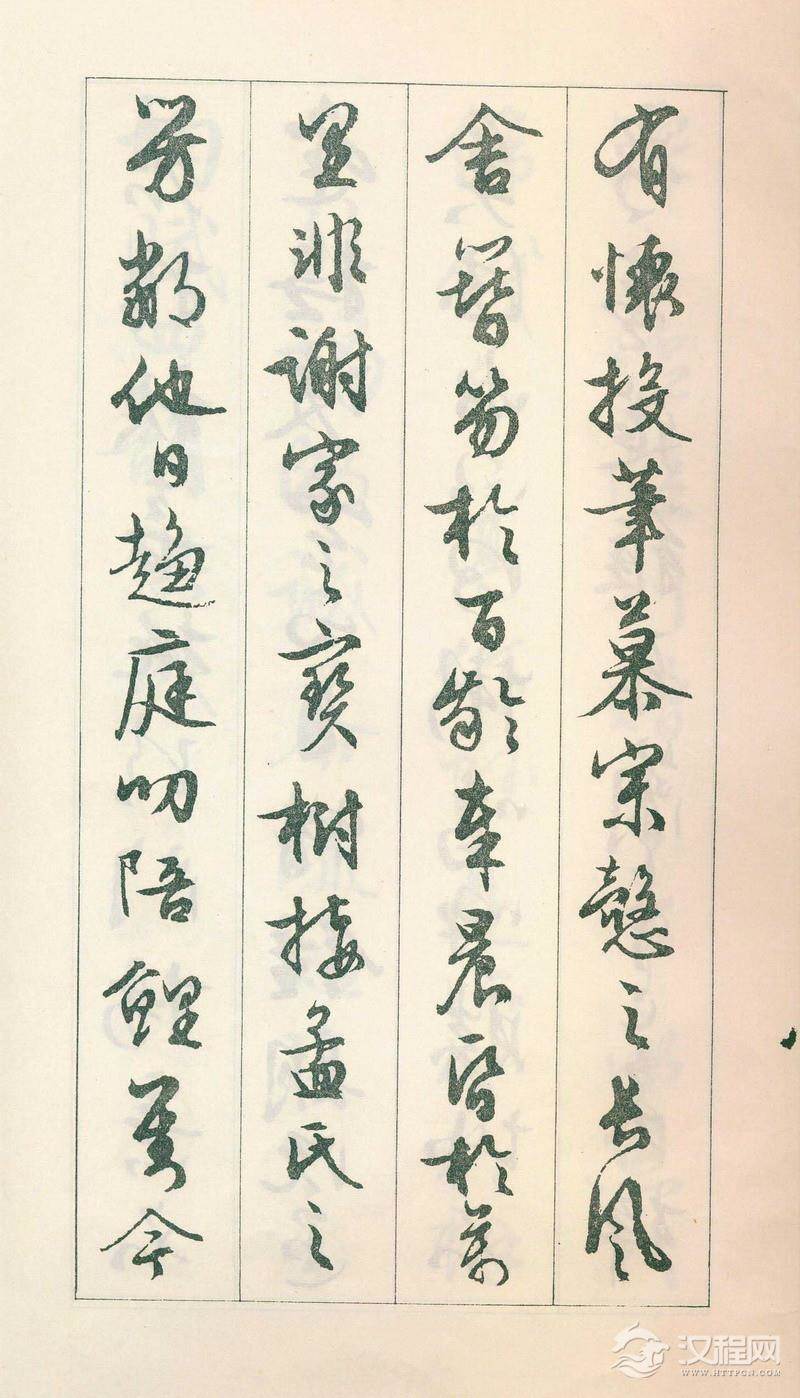 有懷投筆慕宗慤之長風
舍簪笏於百齡奉晨昏於萬
里非謝家之寶樹接孟氏之
芳鄰他日趨庭叨陪鯉對今
汉程网
WWW.HTTPCN.COM